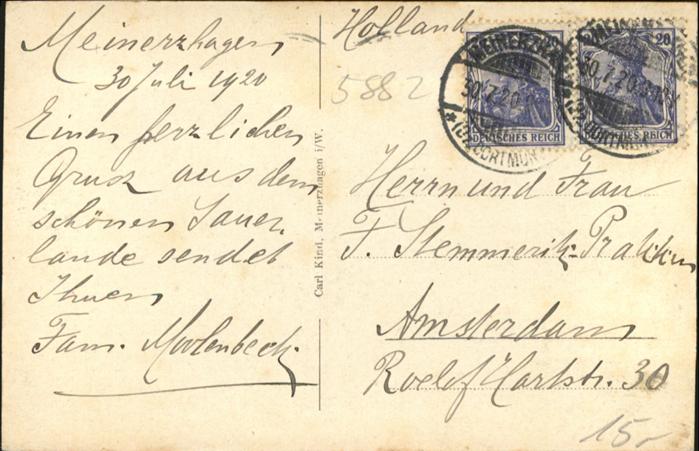 Meinerzhagen
30 Juli 1920
Einen herzlichen
Gruss aus dem
schönen Sauer-
lande sendet
Ihnen
Fam. Moolenbeek.
Carl Kind, Meinerzhagen i/W.
Holland
5882
MEINERZH
30.7.20
(KR. DORTMUN
DEUTSCHES REICH
20
30.7.20
CHES REICH
Herrn und Frau
F. Stemmerik-
Amsterdam
Roelof Hartstr. 30
15,-